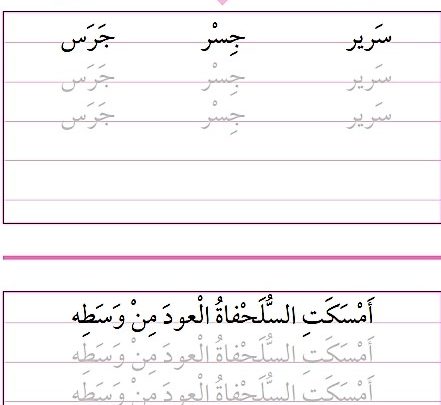 سَرير جِسْر جَرَس
سَرير جِسْر جَرَس
سَرير جِسْر جَرَس
أَمْسَكَتِ السُّلَحْفاةُ الْعودَ مِنْ وَسَطِه
أَمْسَكَتِ السُّلَحْفاةُ الْعودَ مِنْ وَسَطِه
أَمْسَكَتِ السُّلَحْفاةُ الْعودَ مِنْ وَسَطِه